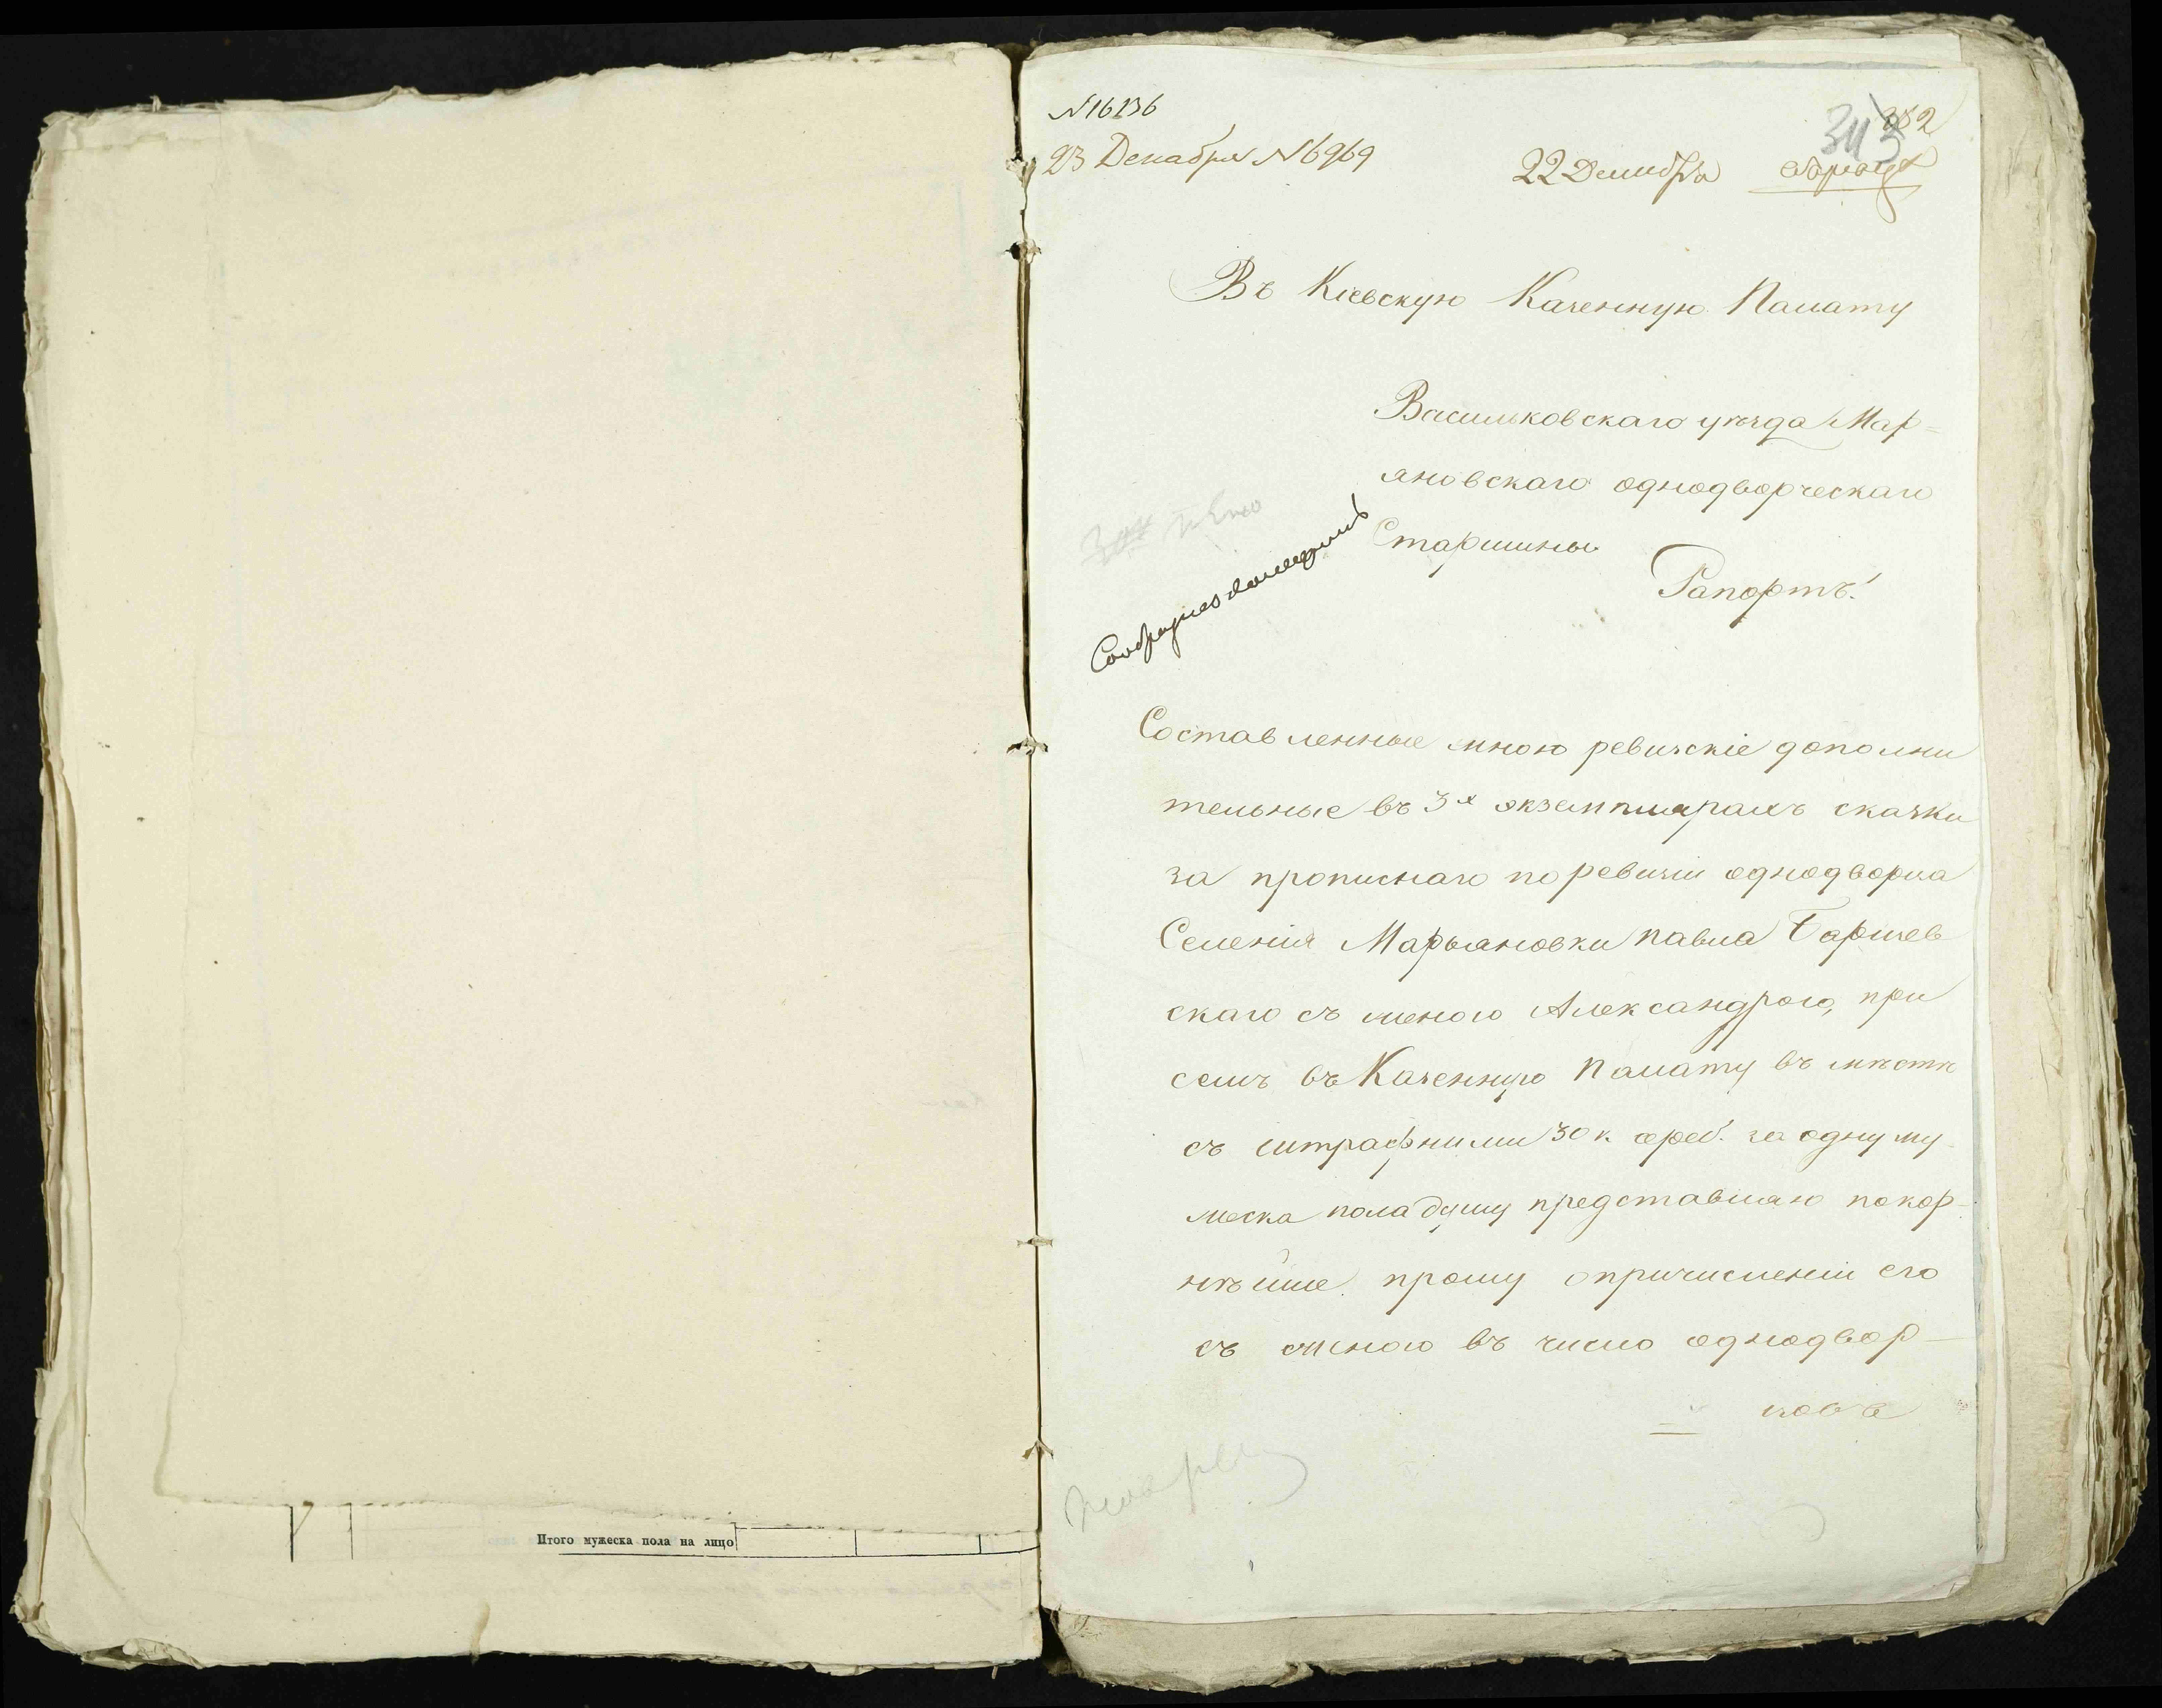 Итого мужеска пола на лицо
№16136
382
343
23 Декабря №6969
22 Декабря
Въ Кіевскую Казенную Палату
Васильковскаго уѣзда Мар=
яновскаго однодворческаго
Старшины
Рапортъ!
Составленные мною ревизскіе дополни
тельные въ 3х экземплярахъ сказки
за прописнаго по ревизіи однодворца
Селенія Марьяновки Павла Баржев
скаго съ женою Александрою, при
семъ въ Казенную Палату въ мѣстѣ
съ штрафними 30 к. сереб. за одну му-
жеска пола душу представляю покор-
нѣйше прошу опричисленіи его
съ женою въ число однодвор-
цовъ